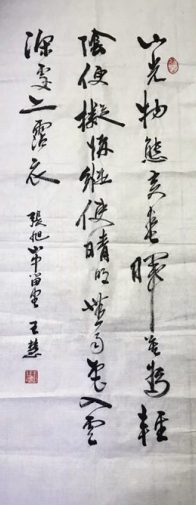 山光物態弄春暉莫為輕
陰便擬歸縱使晴明無雨色入雲
深處亦霑衣 張旭山中留客 王慧